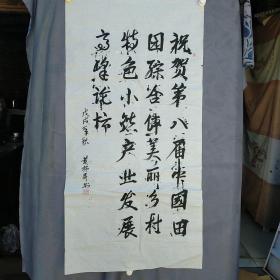 祝贺第八届中国田
园综合体美丽乡村
特色小镇产业发展
高峰论坛
戊戌年秋